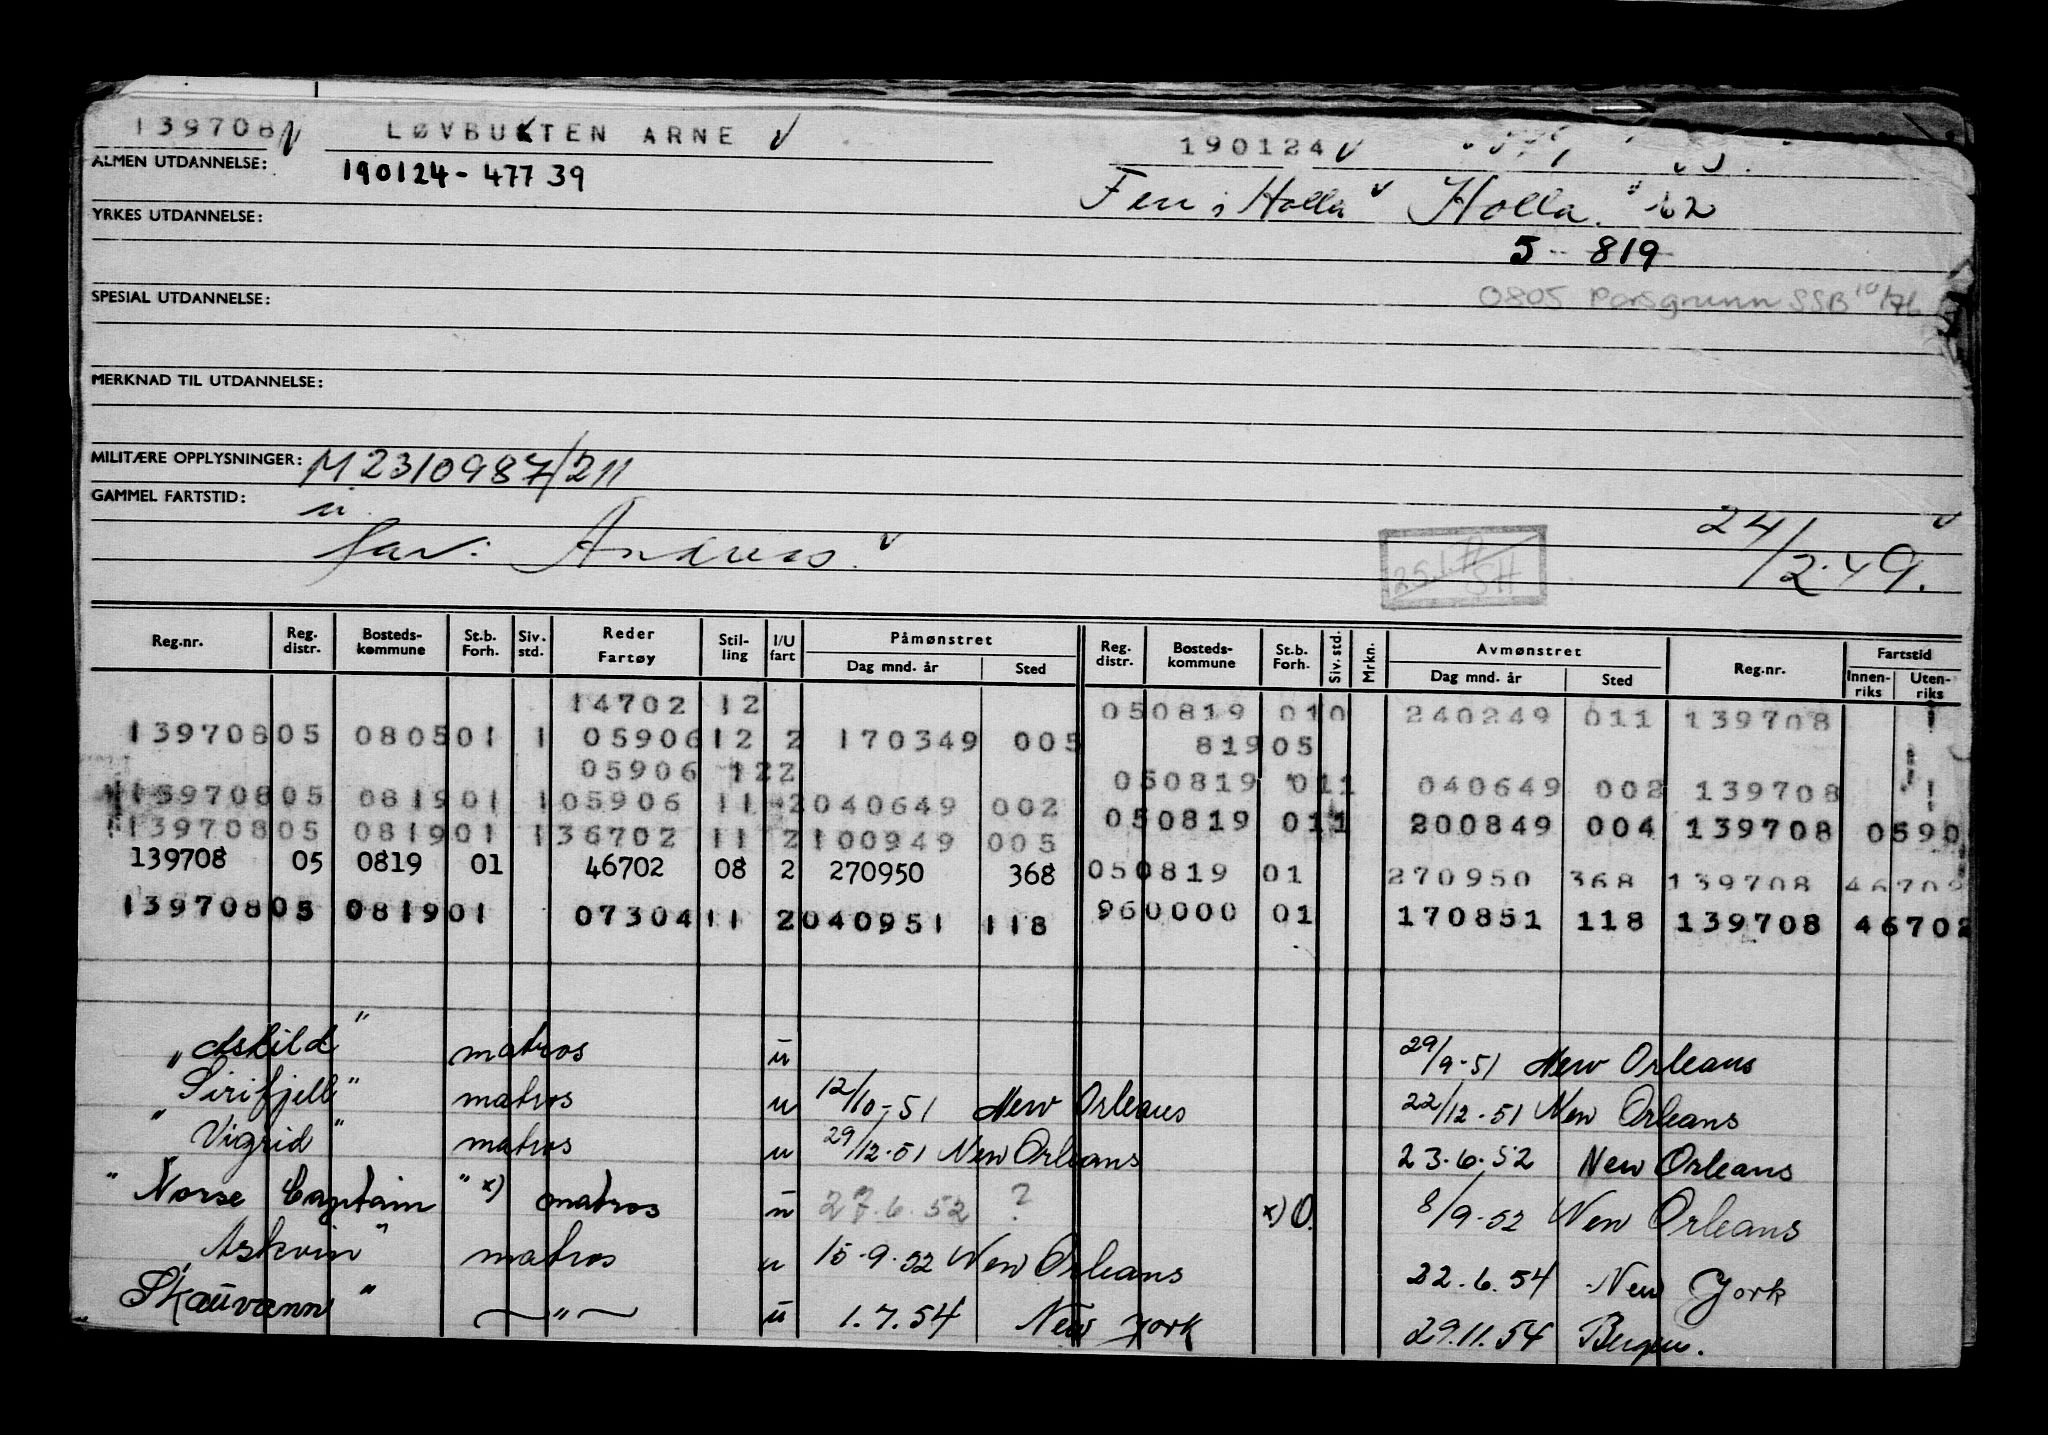 139708 LØVBUKTEN ARNE 190124
ALMEN UTDANNELSE: 190124-47739 Fen i Holla Holla
YRKES UTDANNELSE:
5 819
SPESIAL UTDANNELSE: 0805 Porsgrunn SSB 10/76
MERKNAD TIL UTDANNELSE:
MILITÆRE OPPLYSNINGER: M2310987/211
GAMMEL FARTSTID: u. 24/2.49.
far: Andreas.
Reg.nr. Reg. distr. Bosteds-kommune St.b. Forh. Siv. std. Reder Fartøy Stil-ling I/U fart Påmønstret Dag mnd. år Sted Reg. distr. Bosteds-kommune St.b. Forh. Siv. std. Mrkn. Avmønstret Dag mnd. år Sted Reg.nr. Fartstid Innen-riks Uten-riks
14702 12 050819 010 240249 011 139708
139708 05 0805 01 1 05906 12 2 170349 005 819 05
05906 12 2 050819 011 040649 002 139708
139708 05 0819 01 1 05906 11 2 040649 002 050819 011 200849 004 139708 0590
139708 05 0819 01 1 36702 11 2 100949 005
139708 05 0819 01 46702 08 2 270950 368 050819 01 270950 368 139708 46702
139708 05 0819 01 07304 11 2 040951 118 960000 01 170851 118 139708 46702
"Askild" matros u 29/9-51 New Orleans
"Sirifjell" matros u 12/10-51 New Orleans 22/12-51 New Orleans
"Vigrid" matros u 29/12-51 New Orleans 23.6.52 New Orleans
"Norse Captain" x) matros u 27.6.52 ? x) O. 8/9-52 New Orleans
"Askvin" matros u 15.9.52 New Orleans 22.6.54 New York
"Skauvann" —"— u 1.7.54 New York 29.11.54 Bergen.